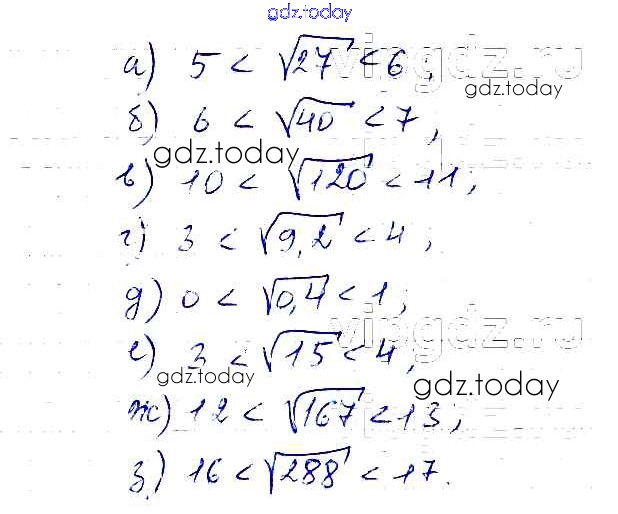 gdz.today
а) 5 < √27 < 6,
vipgdz.ru
gdz.today
б) 6 < √40 < 7,
gdz.today
в) 10 < √120 < 11;
г) 3 < √9,2 < 4;
д) 0 < √0,4 < 1;
vipgdz.ru
е) 3 < √15 < 4,
gdz.today
gdz.today
ж) 12 < √167 < 13;
з) 16 < √288 < 17.